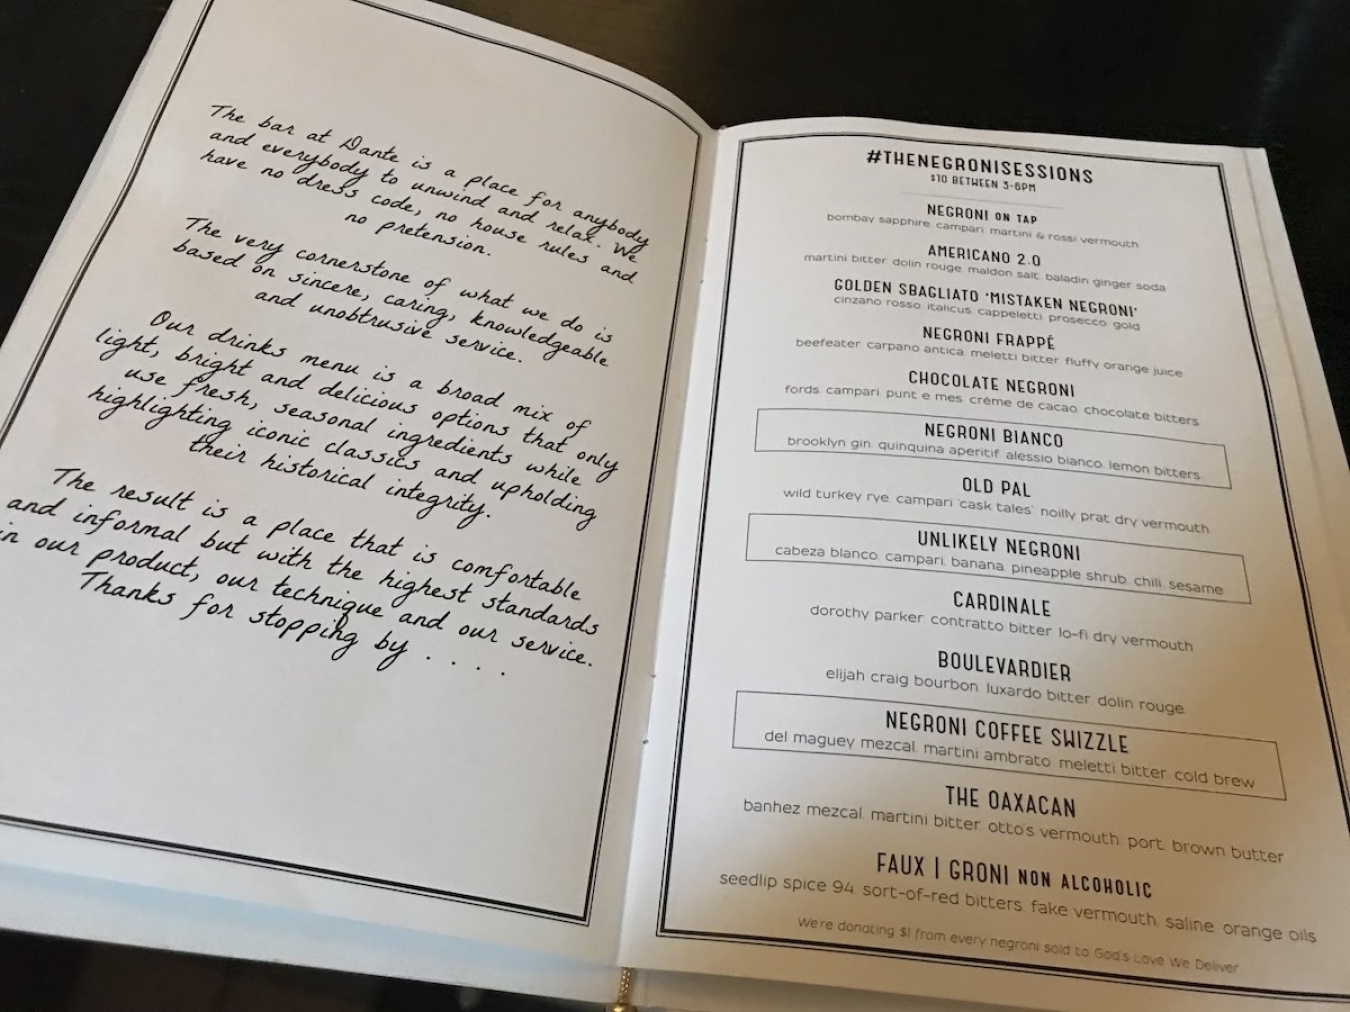 The bar at Dante is a place for anybody
and everybody to unwind and relax. We
have no dress code, no house rules and
no pretension.
The very cornerstone of what we do is
based on sincere, caring, knowledgeable
and unobtrusive service.
Our drinks menu is a broad mix of
light, bright and delicious options that only
use fresh, seasonal ingredients while
highlighting iconic classics and upholding
their historical integrity.
The result is a place that is comfortable
and informal but with the highest standards
in our product, our technique and our service.
Thanks for stopping by . . . .
#THENEGRONISESSIONS
$10 BETWEEN 3-6PM
NEGRONI ON TAP
bombay sapphire. campari. martini & rossi vermouth
AMERICANO 2.0
martini bitter. dolin rouge. maldon salt. baladin ginger soda
GOLDEN SBAGLIATO 'MISTAKEN NEGRONI'
cinzano rosso. italicus. cappeletti. prosecco. gold
NEGRONI FRAPPÉ
beefeater. carpano antica. meletti bitter. fluffy orange juice
CHOCOLATE NEGRONI
fords. campari. punt e mes. crème de cacao. chocolate bitters
NEGRONI BIANCO
brooklyn gin. quinquina aperitif. alessio bianco. lemon bitters
OLD PAL
wild turkey rye. campari 'cask tales'. noilly prat dry vermouth
UNLIKELY NEGRONI
cabeza blanco. campari. banana. pineapple shrub. chili. sesame
CARDINALE
dorothy parker. contratto bitter. lo-fi dry vermouth
BOULEVARDIER
elijah craig bourbon. luxardo bitter. dolin rouge
NEGRONI COFFEE SWIZZLE
del maguey mezcal. martini ambrato. meletti bitter. cold brew
THE OAXACAN
banhez mezcal. martini bitter. otto's vermouth. port. brown butter
FAUX | GRONI NON ALCOHOLIC
seedlip spice 94. sort-of-red bitters. fake vermouth. saline. orange oils
We're donating $1 from every negroni sold to God's Love We Deliver